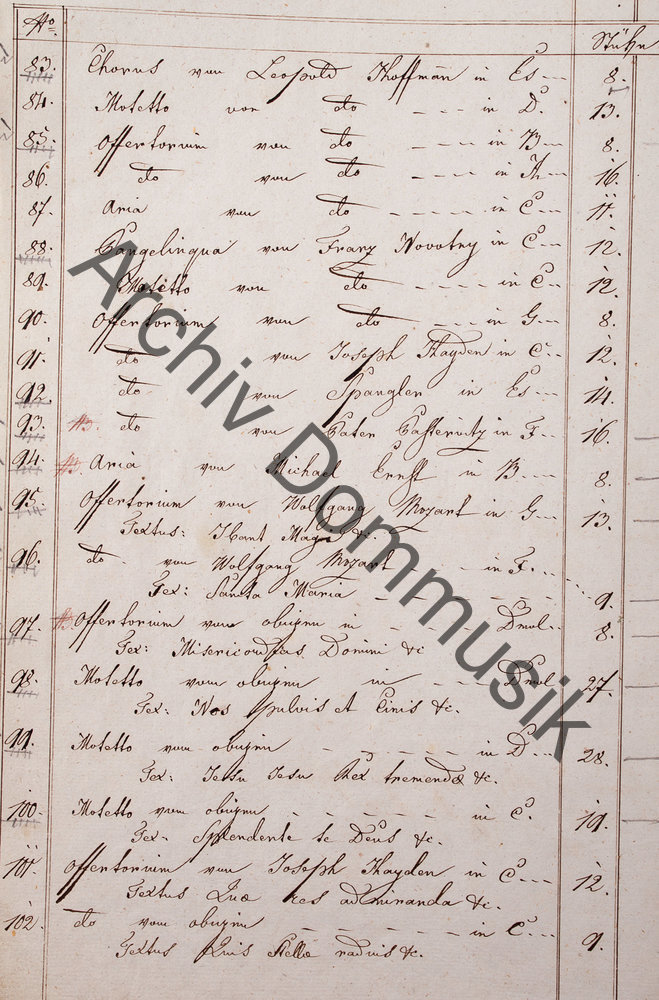 No. Stücke
83. Chorus von Leopold Hoffmañ in Es --- 8.
84. Motetto von do ---- in D. 13.
85. Offertorium von do ---- in B -- 8.
86. do von do ---- in 16.
87. Aria von do ----- in C --- 11.
88. Pangelingua von Franz Novotny in C --- 12.
89. Motetto von do ----- in C -- 12.
90. Offertorium von do ---- in G --- 8.
91. do von Joseph Hayden in C -- 12.
92. do von Spangler in Es --- 14.
93. do von Pater Pasterwitz in F -- 16.
94. Aria von Michael Ernst in B --- 8.
95. Offertorium von Wolfgang Mozart in G --- 13.
Textus: Ibant Magi &c.
96. do von Wolfgang Mozart ---- in F. ----
Tex: Sancta Maria ------- 9.
97. Offertorium vom obigen in ---- Dmol -- 8.
Tex: Misericordias Domini &c
98. Motetto vom obigen in ---- Dmol 27.
Tex: Nos pulvis et Cinis &c.
99. Motetto vom obigen ------- in D --- 28.
Tex: Jesu Jesu Rex tremendæ &c.
100. Motetto vom obigen -------- in C. 19.
Tex: Splendente te Deus &c.
101. Offertorium von Joseph Hayden in C --- 12.
Textus Quæ res admiranda &c.
102. do vom obigen ------- in C --- 9.
Textus Quis stellæ radius &c.
Archiv Dommusik